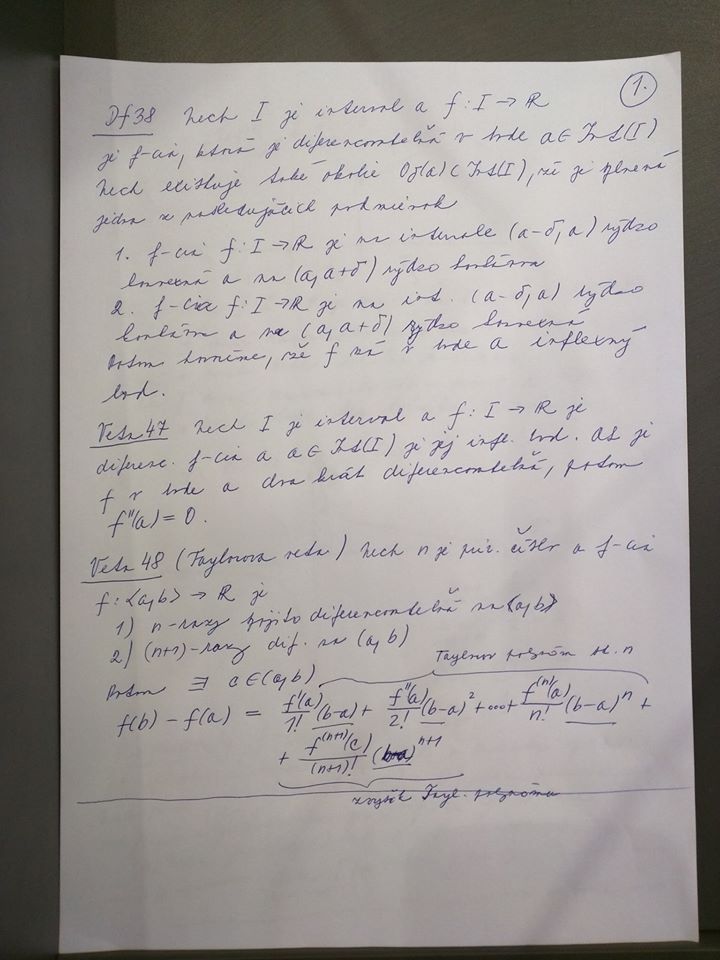 1.
Df 38 Nech I je interval a f: I → R
je f-cia, ktorá je diferencovateľná v bode a ∈ Int(I)
Nech existuje také okolie Oδ(a) ⊂ Int(I), že je splnená
jedna z nasledujúcich podmienok
1. f-cia f: I → R je na intervale (a-δ, a) rýdzo
konvexná a na (a, a+δ) rýdzo konkávna
2. f-cia f: I → R je na int. (a-δ, a) rýdzo
konkávna a na (a, a+δ) rýdzo konvexná
Potom hovoríme, že f má v bode a inflexný
bod.
Veta 47 Nech I je interval a f: I → R je
diferenc. f-cia a a ∈ Int(I) je jej infl. bod. Ak je
f v bode a dva krát diferencovateľná, potom
f''(a) = 0.
Veta 48 (Taylorova veta) Nech n je prir. číslo a f-cia
f: <a,b> → R je
1) n-razy spojito diferencovateľná na <a,b>
2) (n+1)-razy dif. na (a,b)
Taylorov polynóm st. n
Potom ∃ c ∈ (a,b)
f(b) - f(a) = f'(a)/1! (b-a) + f''(a)/2! (b-a)² + ... + f⁽ⁿ⁾(a)/n! (b-a)ⁿ +
+ f⁽ⁿ⁺¹⁾(c)/(n+1)! (b-a)ⁿ⁺¹
zvyšok Tayl. polynómu